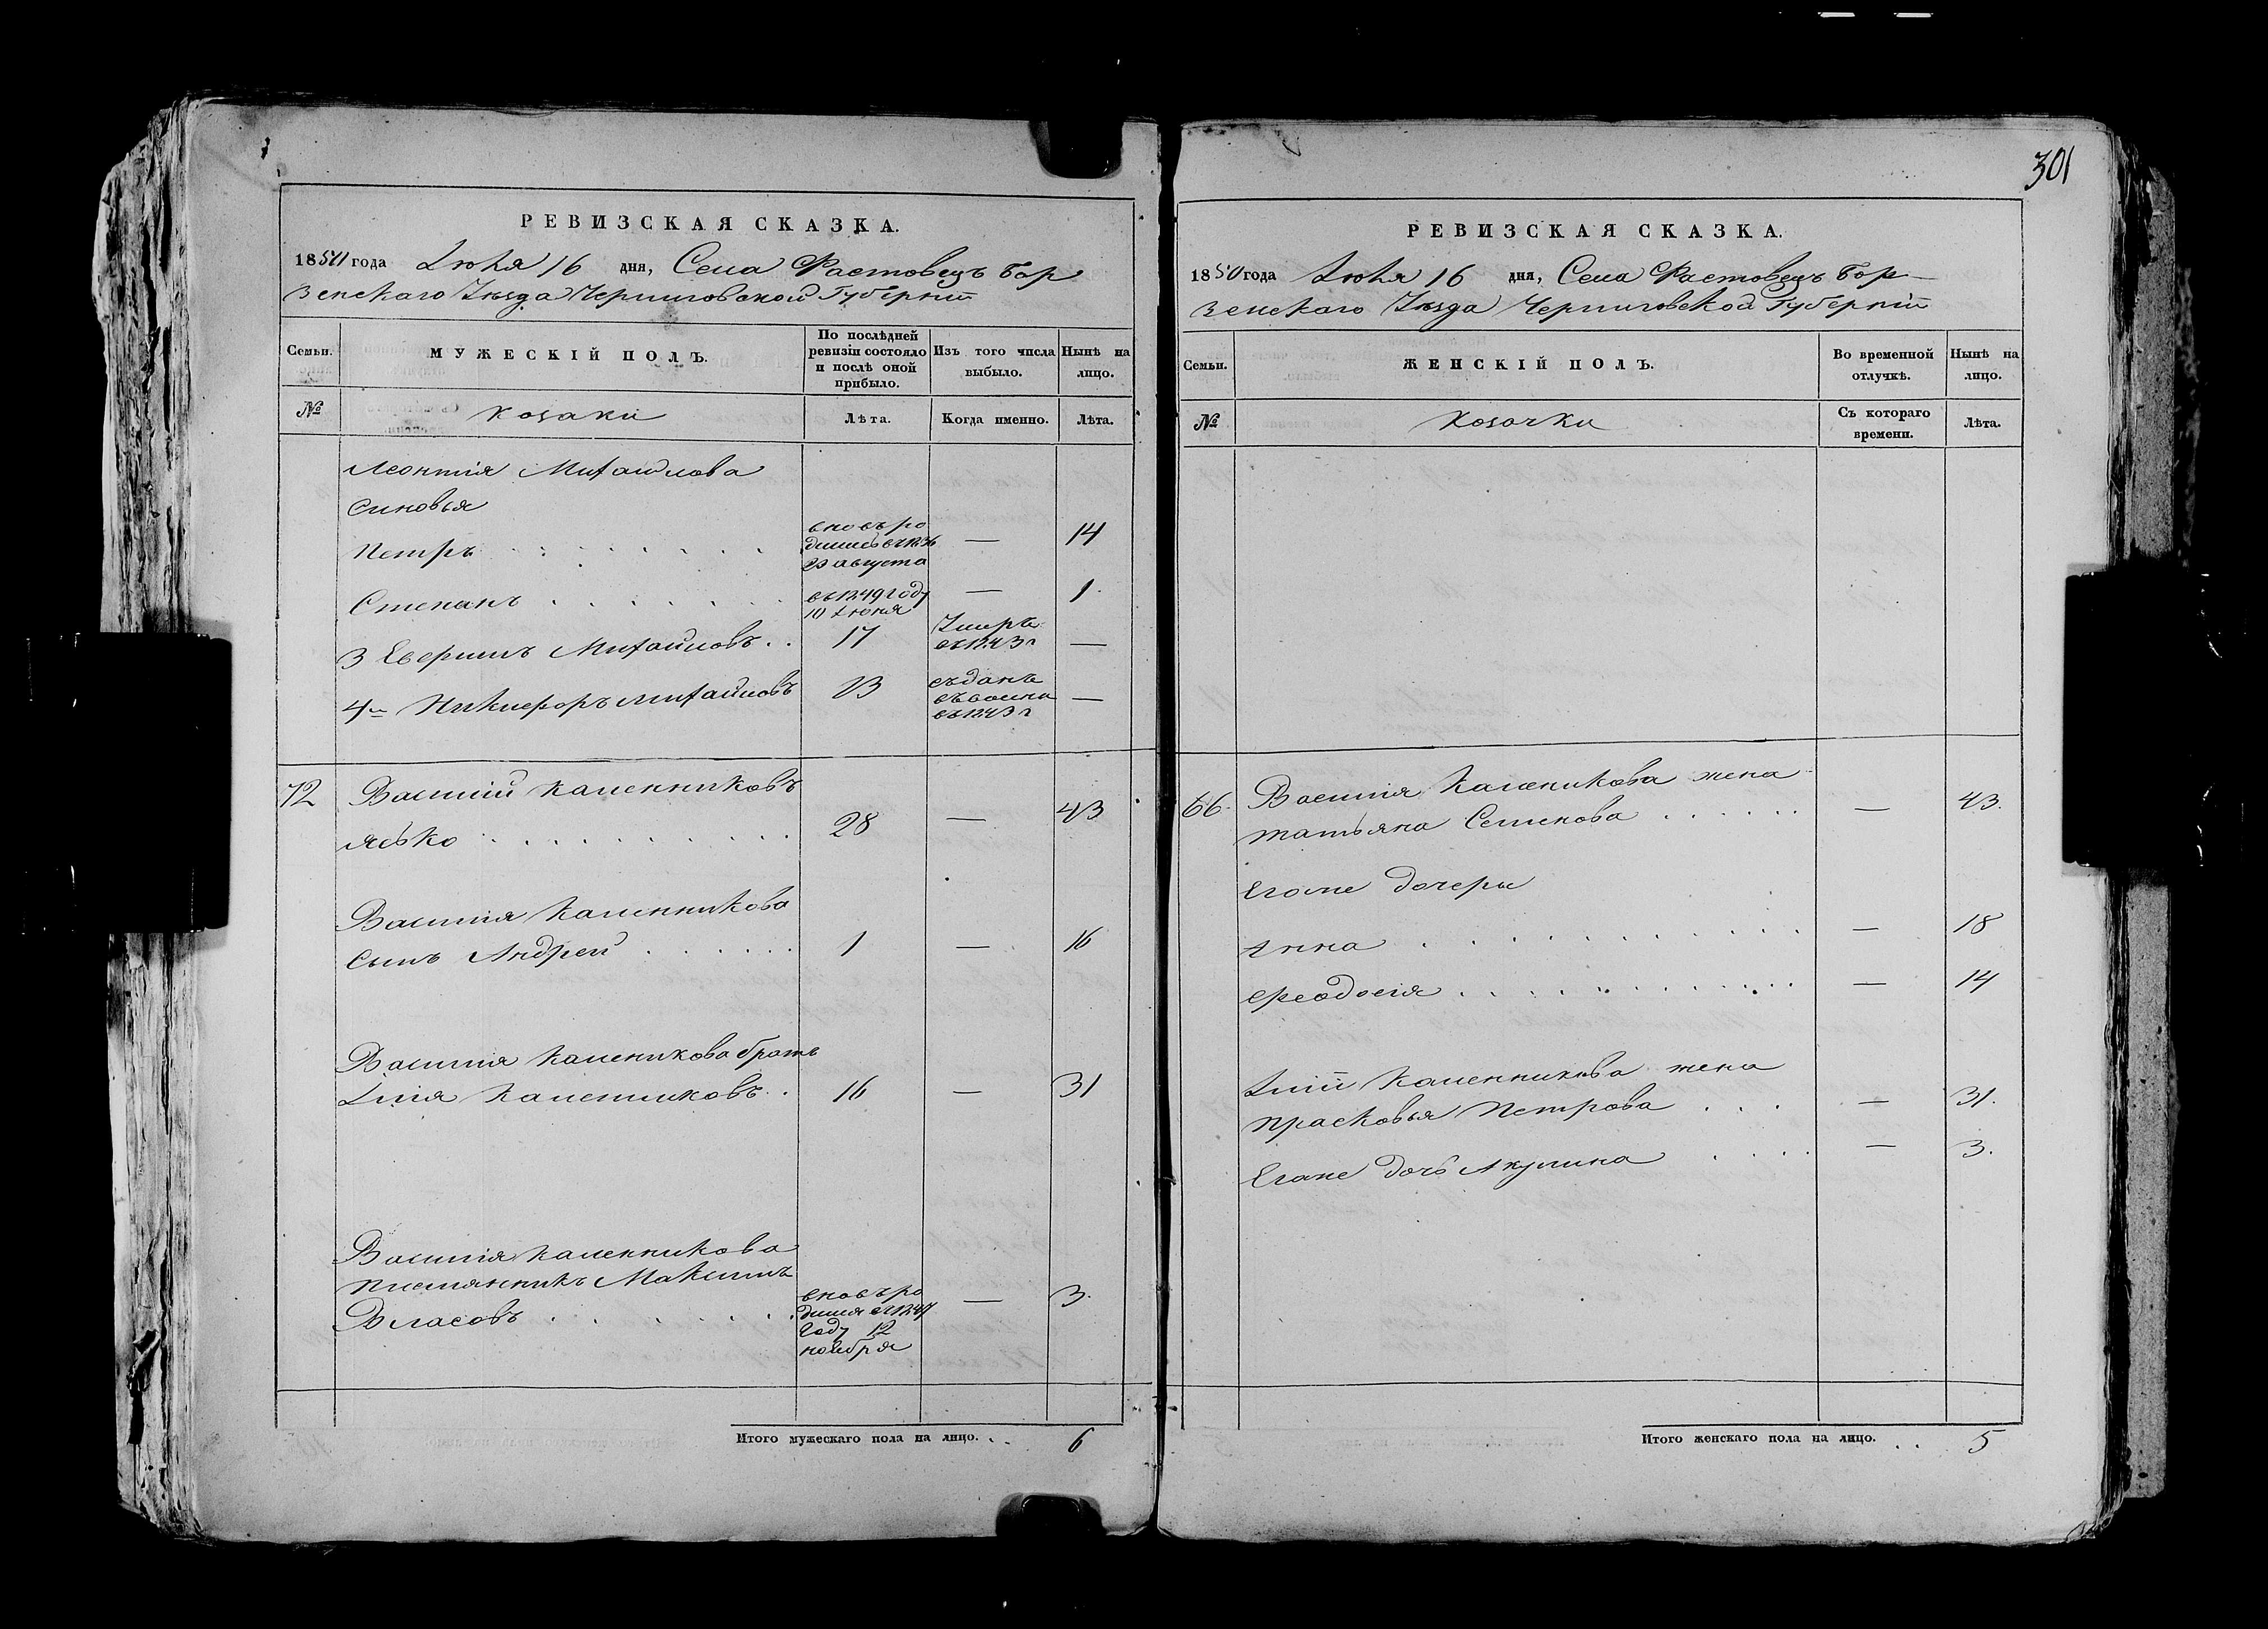 301
РЕВИЗСКАЯ СКАЗКА.
1850 года Іюля 16 дня, Села Фастовецъ Бор
зенскаго Уѣзда Черниговской Губерніи
Семьи.
МУЖЕСКІЙ ПОЛЪ.
По послѣдней ревизіи состояло и послѣ оной прибыло.
Изъ того числа выбыло.
Нынѣ на лицо.
№
козаки
Лѣта.
Когда именно.
Лѣта.
Леонтія Михайлова
синовья
Петръ вновь ро
дился въ 1836
23 августа — 14
Степанъ въ 1849 году
10 Іюня — 1
3 Михайловъ 17 Умръ
въ 1843 г —
4й Никифоръ Михайловъ 23
въ 1843 г —
72 Василий Каленниковъ
28 — 43
Василія Каленникова
сынъ Андрей 1 — 16
Василія Каленикова братъ
Ілія Каленниковъ 16 — 31
Василія Каленникова
племянникъ Максимъ
Власовъ вновь ро
дился въ 1847
году 12
ноября — 3
Итого мужескаго пола на лицо. 6
РЕВИЗСКАЯ СКАЗКА.
1850 года Іюля 16 дня, Села Фастовецъ Бор
зенскаго Уѣзда Черниговской Губерніи
Семьи.
ЖЕНСКІЙ ПОЛЪ.
Во временной отлучкѣ.
Нынѣ на лицо.
№
козачки
Съ котораго времени.
Лѣта.
66 Василія Каленикова жена
татьяна Семенова — 43.
Егоже дочери
Анна — 18
Феодосія — 14
Іліи Каленникова жена
Прасковья Петрова — 31.
Егоже дочь Акулина — 3.
Итого женскаго пола на лицо. 5